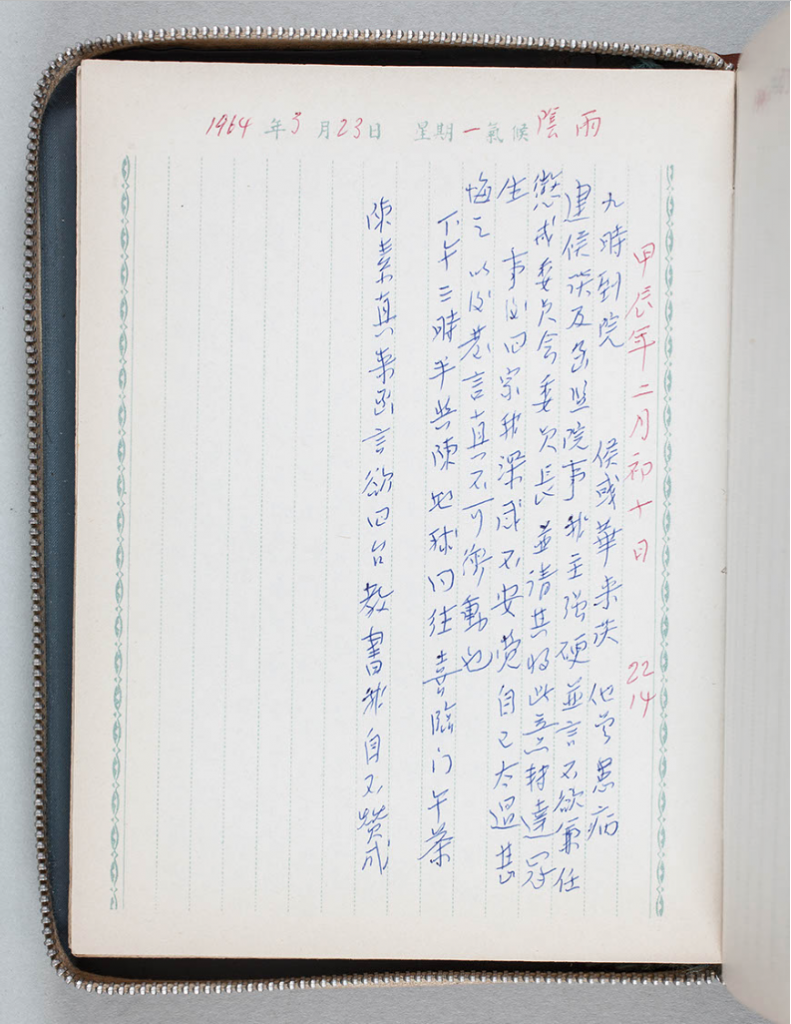 1964年3月23日 星期一氣候陰雨
甲辰年二月初十日 22 14
九時到院 侯或華來談 他曾患病
建侯談及函監院事 我主強硬 並言不欲兼任
懲戒委員會委員長 並請其將此立點轉達冠
生 事後回家我深感不安 覺自己太過甚
悔之 以後慈言真不可衝動也
下午三時半與陳地球同往喜臨门午茶
陳素真來函言欲回台教書我自不贊成